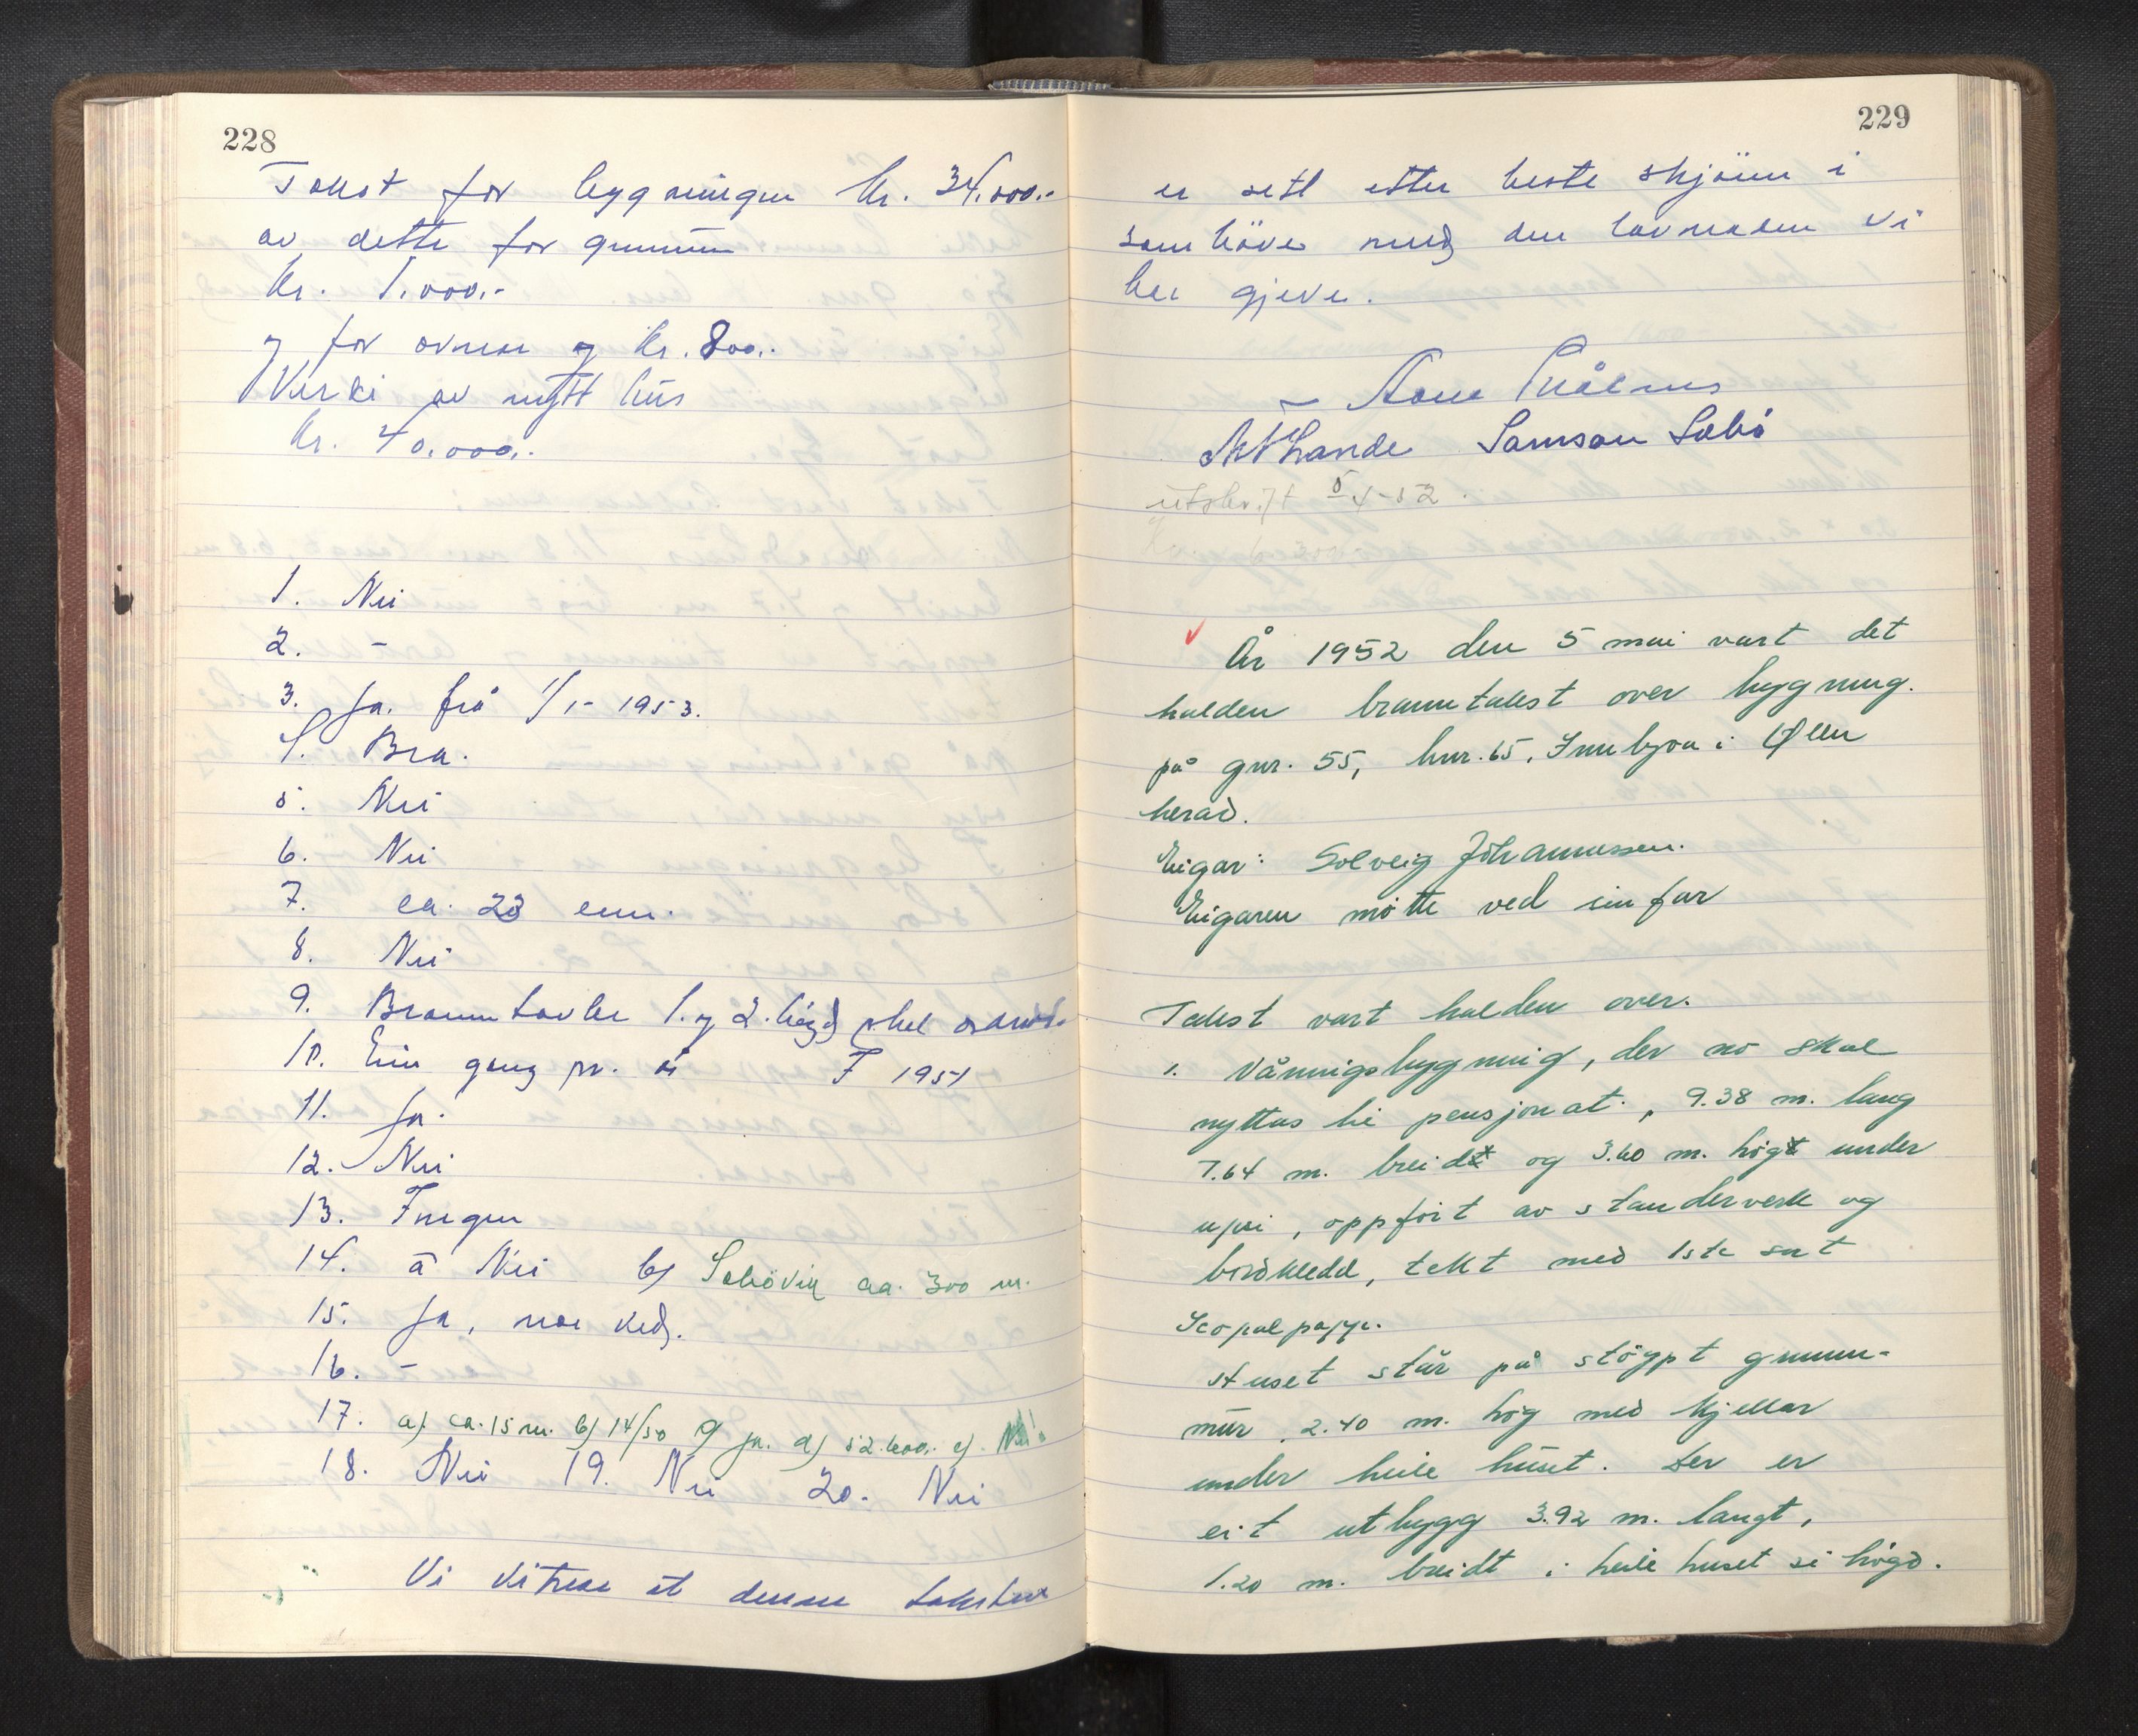 228
Takst for bygningen kr. 34.000.-
av dette for grunnm
kr. 1.000.-
og for ovnene og kr. 800.-
Verdi av nytt hus
kr. 40.000.-
1. Nei
2. -
3. Ja. frå 1/1- 1953.
4. Bra.
5. Nei
6. Nei
7. ca. 23 cm.
8. Nei
9. Branntavler 1. og 2. högd skal
10. Ein gong pr. år F 1951
11. Ja.
12. Nei
13. Ingen
14. a Nei b) Sæbövik ca. 300 m.
15. Ja, noe ved.
16. -
17. a). ca. 15 m. b) 14/50 c) ja. d) 52.600.- e). Nei
18. Nei 19. Nei 20. Nei
Vi vitnar at denne taksten
229
er sett etter beste skjönn i
samhöve med den lovnaden vi
har gjeve.
Samson Sæbö
utskrift 5/4-52.
Kr. 63000
År 1952 den 5 mai vart det
halden branntakst over bygning.
på gnr. 55, bnr. 65, Innbjoa i Ølen
herad.
Eigar: Solveig Johannessen.
Eigaren møtte ved sin far
Takst vart halden over.
1. Våningsbygning, der no skal
nyttas til pensjonat., 9.38 m. lang
7.64 m. breidt og 3.60 m. högt under
upsi, oppført av standerverk og
bordkledd, tekt med 1ste sort
Icopalpapp.
Huset står på stöypt grunn-
mur, 2.40 m. hög med kjellar
under heile huset. Der er
eit utbygg 3.92 m. langt,
1.20 m. breidt i heile huset si högd.